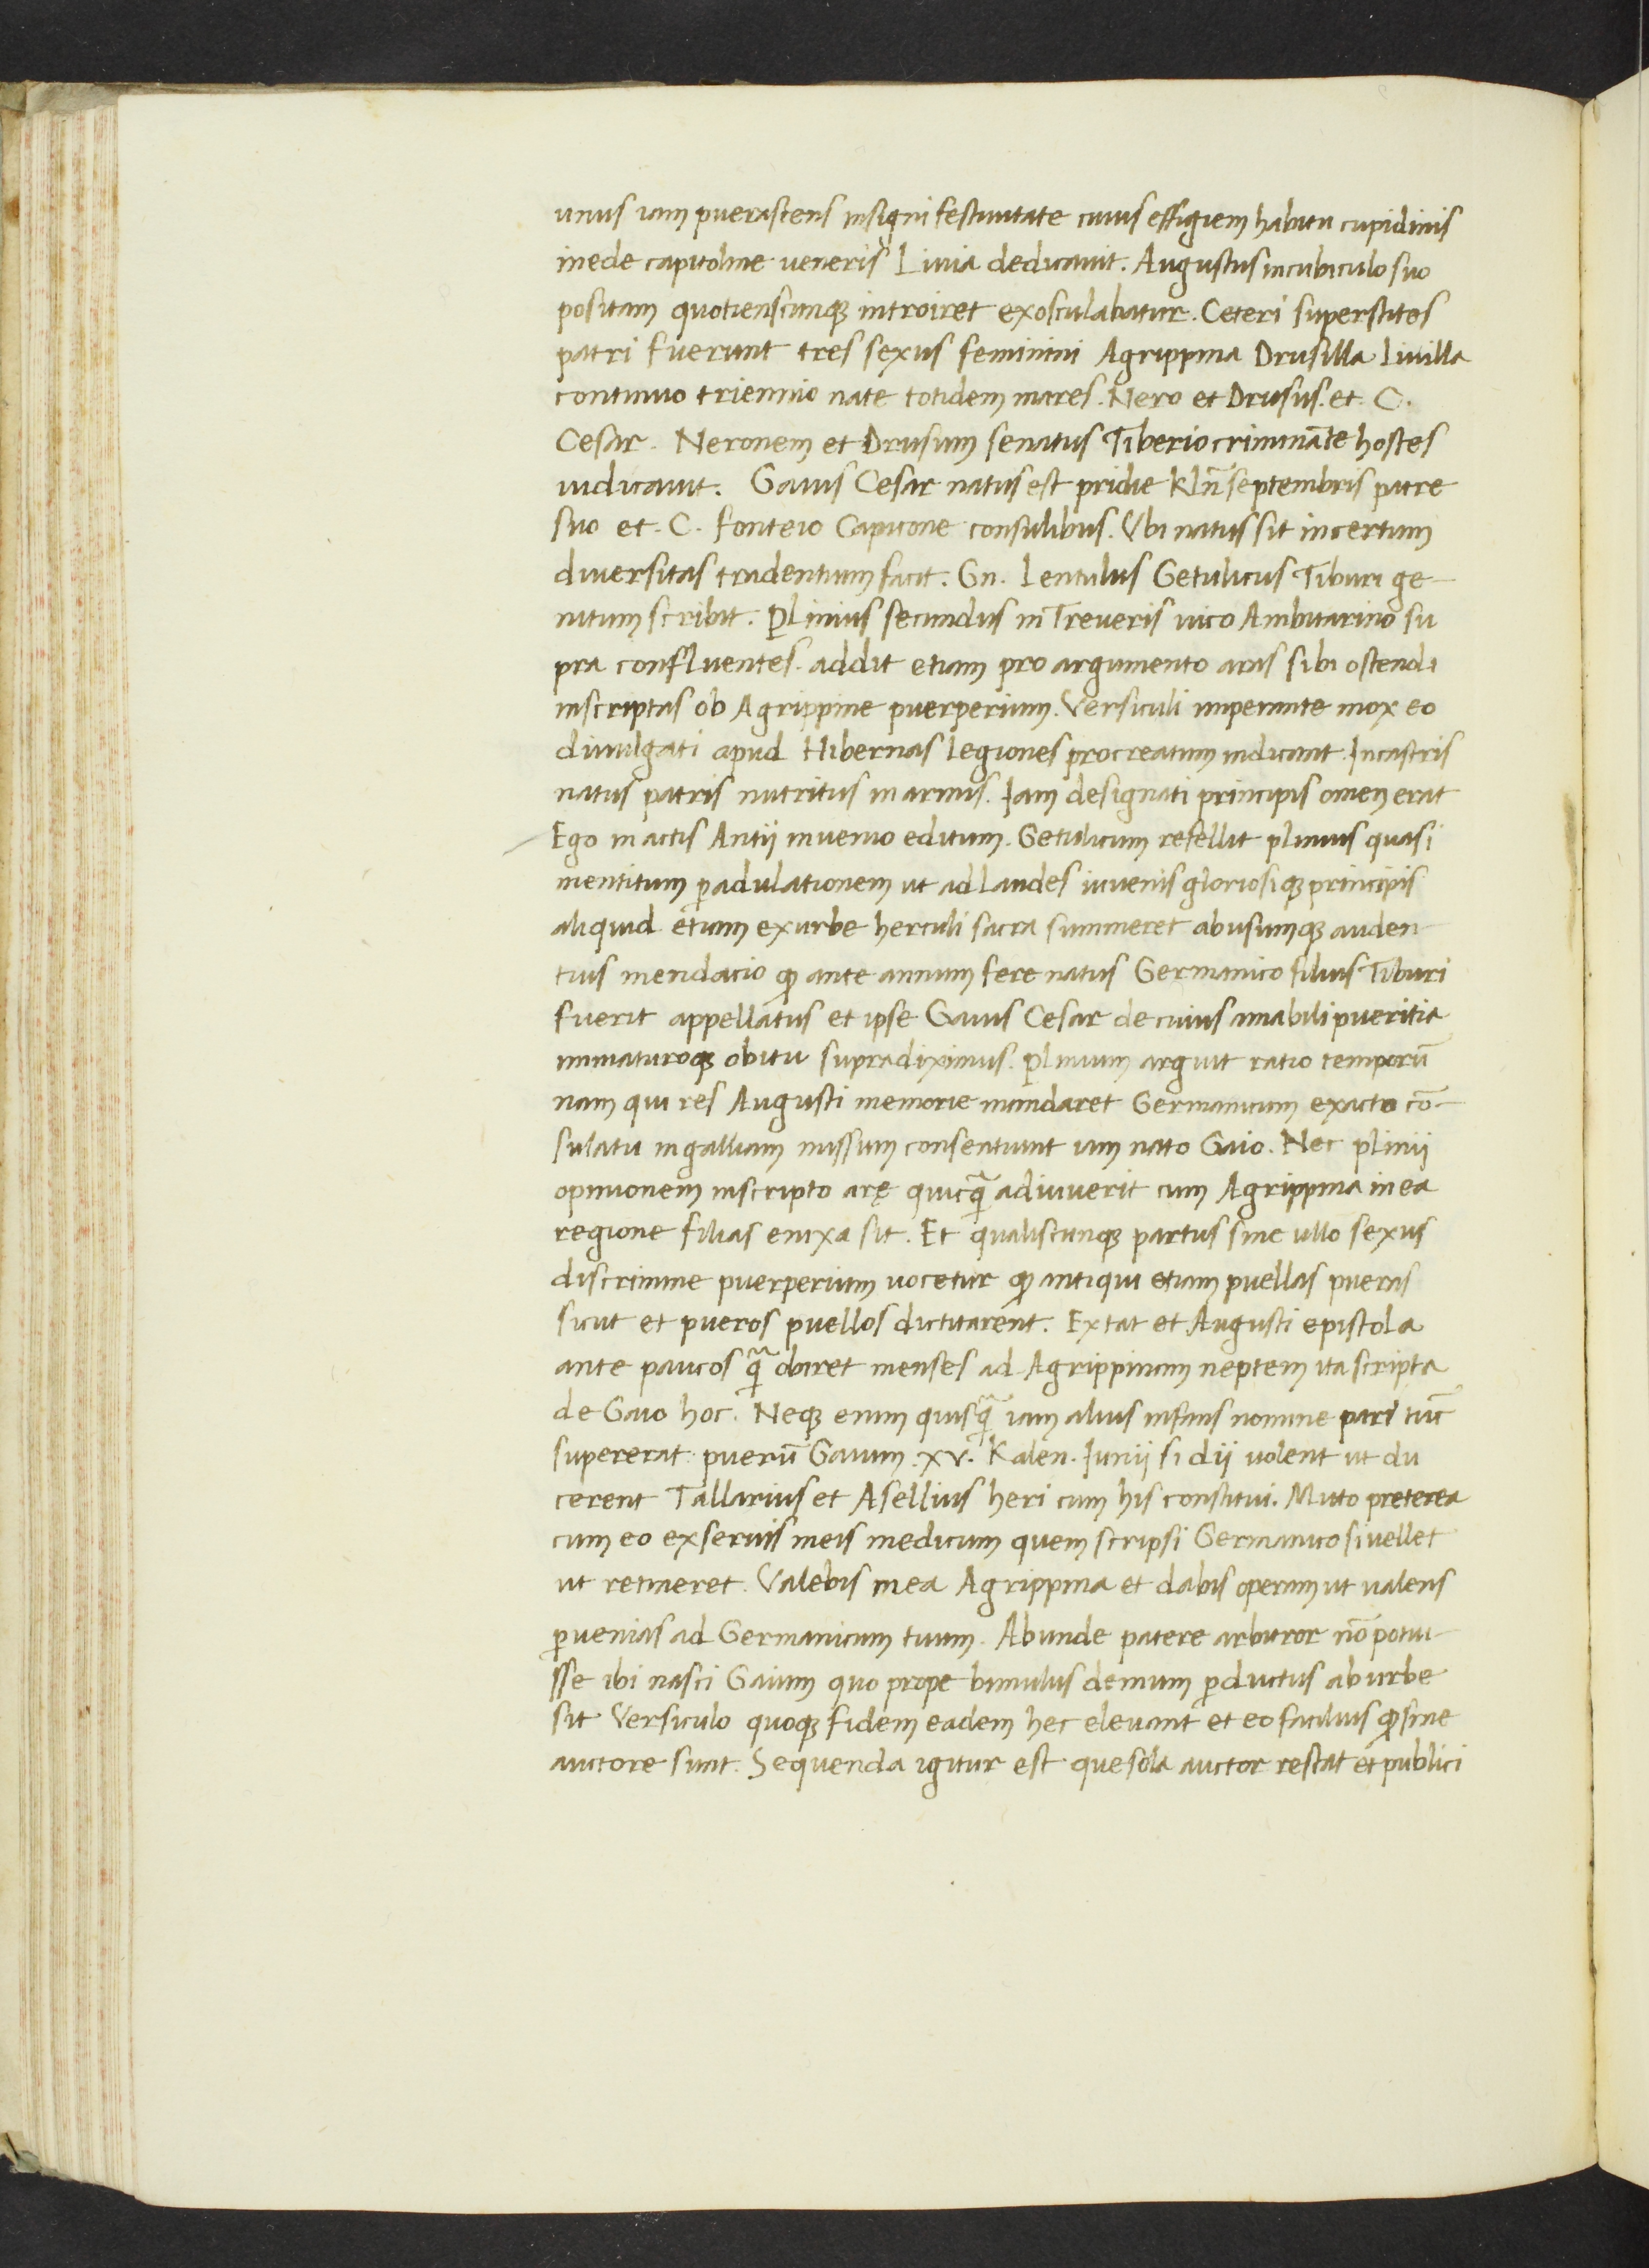 unus iam puerascens insigni festiuitate cuius effigiem habitu cupidinis
in ede capitoline ueneris Liuia dedicauit. Augustus in cubiculo suo
positam quotienscunq; introiret exosculabatur. Ceteri superstites
patri fuerunt tres sexus feminini Agrippina Drusilla Liuilla
continuo triennio nate totidem mares. Nero et Drusus. et. C.
Cesar. Neronem et Drusum senatus Tiberio criminãte hostes
iudicauit. Gaius Cesar natus est pridie kln̄ septembris patre
suo et. C. fonteio Capitone consulibus. Vbi natus sit incertum
diuersitas tradentium facit. Gn. Lentulus Getulicus Tiburi ge-
nitum scribit. Plinius secundus in Treueris uico Ambitarino su
pra confluentes. addit etiam pro argumento aras sibi ostendi
inscriptas ob Agrippine puerperium. Versiculi imperante mox eo
diuulgati apud Hibernas legiones procreatum indicant. In castris
natus patris nutritus in armis. Iam designati principis omen erat
Ego in actis Antij inuenio editum. Getulicum refellit plinius quasi
mentitum ꝑ adulationem ut ad laudes iuuenis gloriosiq; principis
aliquid etiam ex urbe herculi sacra summeret abusumq; auden
tius mendacio ꝙ ante annum fere natus Germanico filius Tiburi
fuerit appellatus et ipse Gaius Cesar de cuius amabili pueritia
immaturoq; obitu supra diximus. Plinium arguit ratio temporū
nam qui res Augusti memorie mandaret Germanicum exacto cō-
sulatu in galliam missum consentiunt iam nato Gaio. Nec plinij
opinionem inscripto arę quicq̃ adiuuerit cum Agrippina in ea
regione filias enixa sit. Et qualiscunq; partus sine ullo sexus
discrimine puerperium uocetur ꝙ antiqui etiam puellas pueras
sicut et pueros puellos dictitarent. Extat et Augusti epistola
ante paucos q̃ obiret menses ad Agrippinam neptem ita scripta
de Gaio hoc. Neq; enim quisq̃ iam alius infans nomine pari tūc
supererat. puerū Gaium. xv. Kalen. Iunij si dij uolent ut du
cerent Tallarius et Asellius heri cum his constitui. Mitto preterea
cum eo ex seruis meis medicum quem scripsi Germanico si uellet
ut retineret. Valebis mea Agrippina et dabis operam ut ualens
ꝑuenias ad Germanicum tuum. Abunde patere arbitror nō potui-
sse ibi nasci Gaium quo prope bimulus demum ꝑductus ab urbe
sit Versiculo quoq; fidem eadem hec eleuant et eo facilius ꝙ sine
auctore sunt. Sequenda igitur est que sola auctor restat et publici